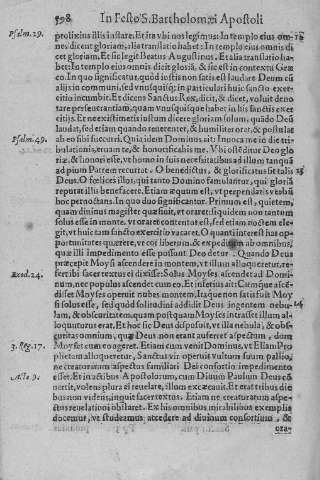 598 In Festo S. Bartholomæi Apostoli
Psalm. 29.
prolixius illis instare. Et ita vbi nos legimus: In templo eius om-
nes dicent gloriam, alia translatio habet: In templo eius omnis di
cet gloriam. Et sic legit Beatus Augustinus. Et alia translatio ha-
bet: In templo eius omnis dicit gloria, & sic est in contextu Græ
co. In quo significatur, quòd iustis non satis est laudare Deum cũ
alijs in communi, sed vnusquisq; in particulari huic sancto exer-
citio incumbit. Et dicens Sanctus Rex, dicit, & dicet, voluit deno
tare perseuerantiam, quam vnusquisque habet in his sanctis exer
citijs. Et ne existimetis iustum dicere gloriam solum, quãdo Deũ
laudat, sed etiam quando reuerenter, & humiliter orat, & postulat
Psalm. 49.
ab eo sibi succurri. Quia idem Dominus ait: Inuoca me in die tri-
bulationis, eruam te, & honorificabis me. Vbi ostẽditur Deo glo
riæ, & honori esse, vt homo in suis necessitatibus ad illum tanquã
ad pium Patrem recurrat. O benedictus, & glorificatus sit talis
Deus. O fœlices illos, qui tanto Domino famulantur, qui gloria
reputat illis benefacere. Etiam æquum est, vt perpendatis verbũ
hoc pernoctans. In quo duo significantur. Primum est, quietem,
quam diuinus magister quærebat, vt oraret: siquidem non tantum
solus esse in monte, vt oraret contentus est, sed etiam noctem ele-
git, vt huic tam sancto exercitio vacaret. O quanti interest has op-
portunitates quærere, vt cor liberum, & expeditum ab omnibus,
quæ illi impedimento esse possunt Deo detur. Quando Deus
præcepit Moysi ascendere in montem, vt illum alloqueretur, re-
Exod. 24.
fert ibi sacer textus ei dixisse: Solus Moyses ascendet ad Domi-
num, nec populus ascendet cum eo. Et inferius ait: Cumque ascẽ-
disset Moyses operuit nubes montem. Itaque non satis fuit Moy
si solus esse, sed quòd solitudini addidit Deus ingentem nebu-
lam, & obscuritatem, quam postquam Moyses intrasset illum al-
loquuturus erat. Et hoc sic Deus disposuit, vt illa nebula, & obs-
guritas omnium, quæ Deus non erant auferret aspectum, dom
3. Reg. 17.
Moyses cum eo ageret. Etiam cum venit Dominus, vt Eliam Pro
phetam alloqueretur, Sanctus vir operuit vultum suum pallio,
ne creaturarum aspectus familiari Dei consortio impedimento
Acta 9.
esset. Et in actibus Apostolorum, cum Diuum Paulum Deus cõ
uertit, volens plura ei reuelare, illum excæcauit. Et erat tribus die
bus non videns, inquit sacer textus. Etiam ne creaturarum aspe-
ctus reuelationi obstaret. Ex his omnibus mirabilibus exemplis
docemur, vt studeamus accedere ad diuinum consortium, &
ora-